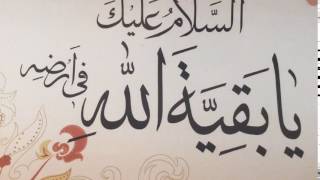 السَّلَامُ عَلَيْكَ
يَا بَقِيَّةَ اللهِ فِي أَرْضِهِ